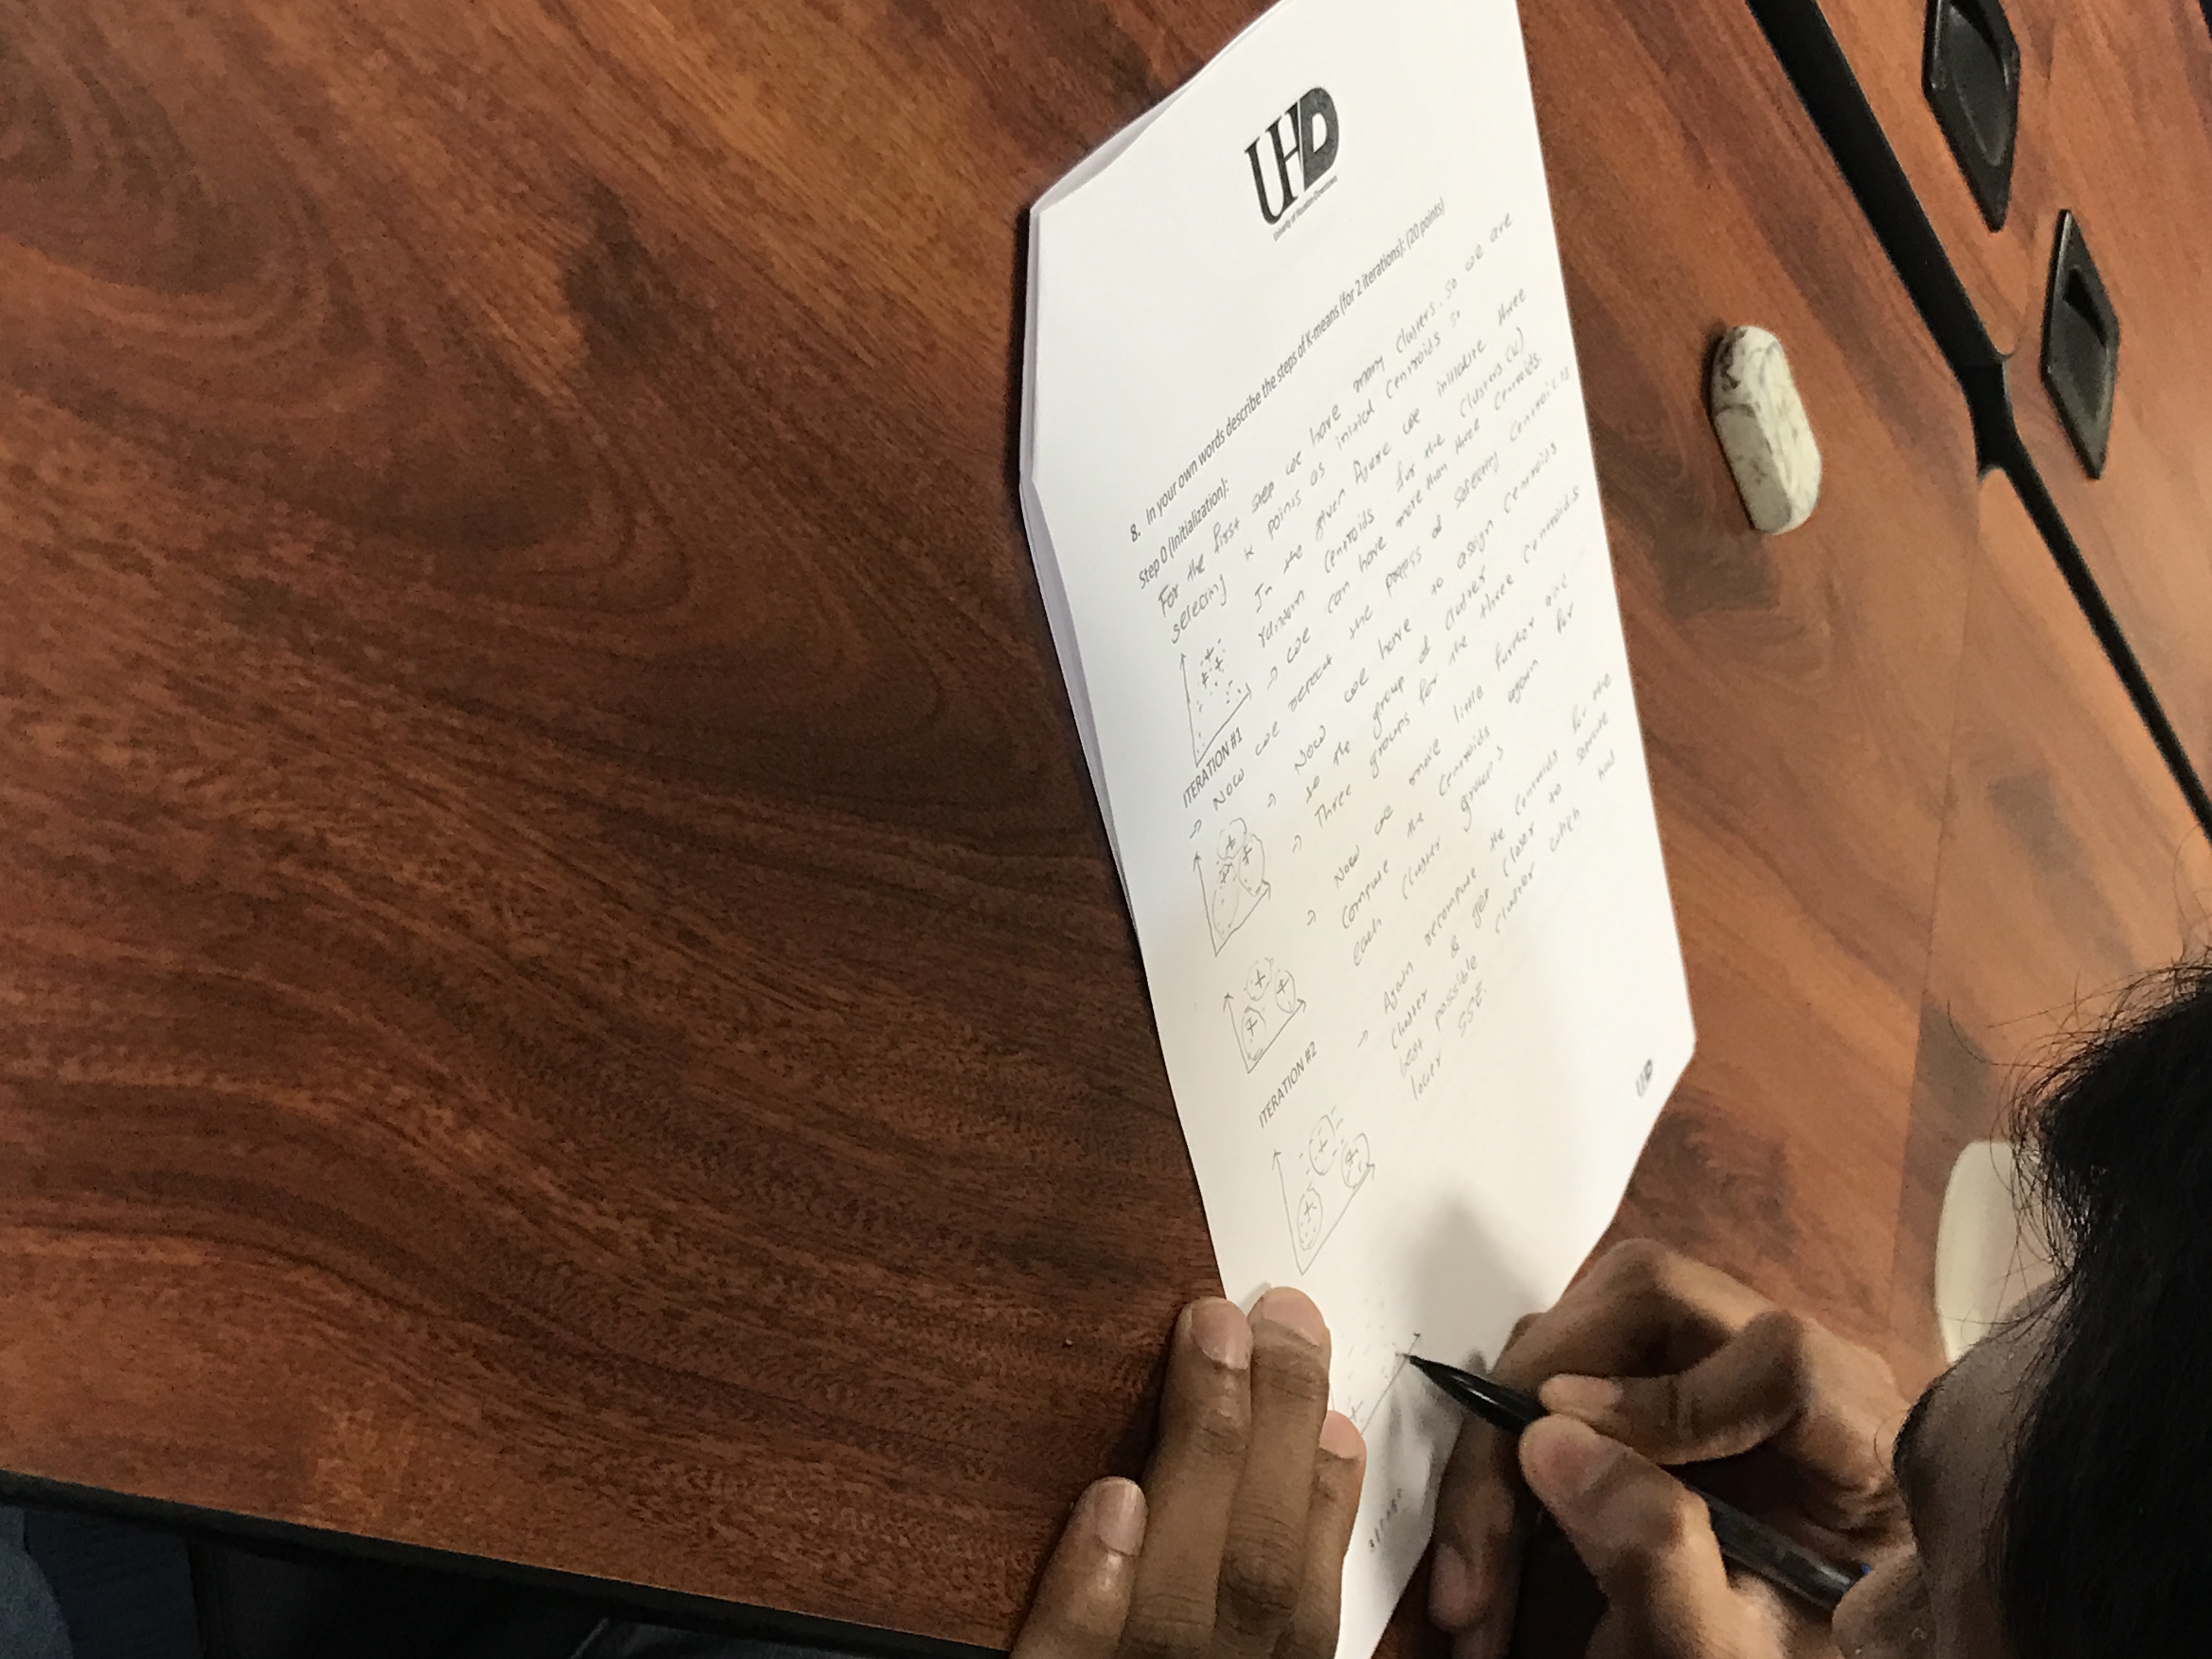 UHD
University of Houston-Downtown
8. In your own words describe the steps of K-means (for 2 iterations): (20 points)
Step 0 (Initialization):
For the first step we have many clusters. So we are
selecting k points as initial centroids so
In the given figure we initiate three
random centroids for the clusters (k)
→ we can have more than three centroids.
ITERATION #1
→ Now we the process of selecting centroids
→ Now we have to assign centroids
to the group of cluster
→ Three groups for the three centroids
→ Now we move little further and
compute the centroids again for
each cluster groups
ITERATION #2
→ Again recompute the centroids for the
cluster & get closer to
best possible cluster which has
lower SSE.
UHD